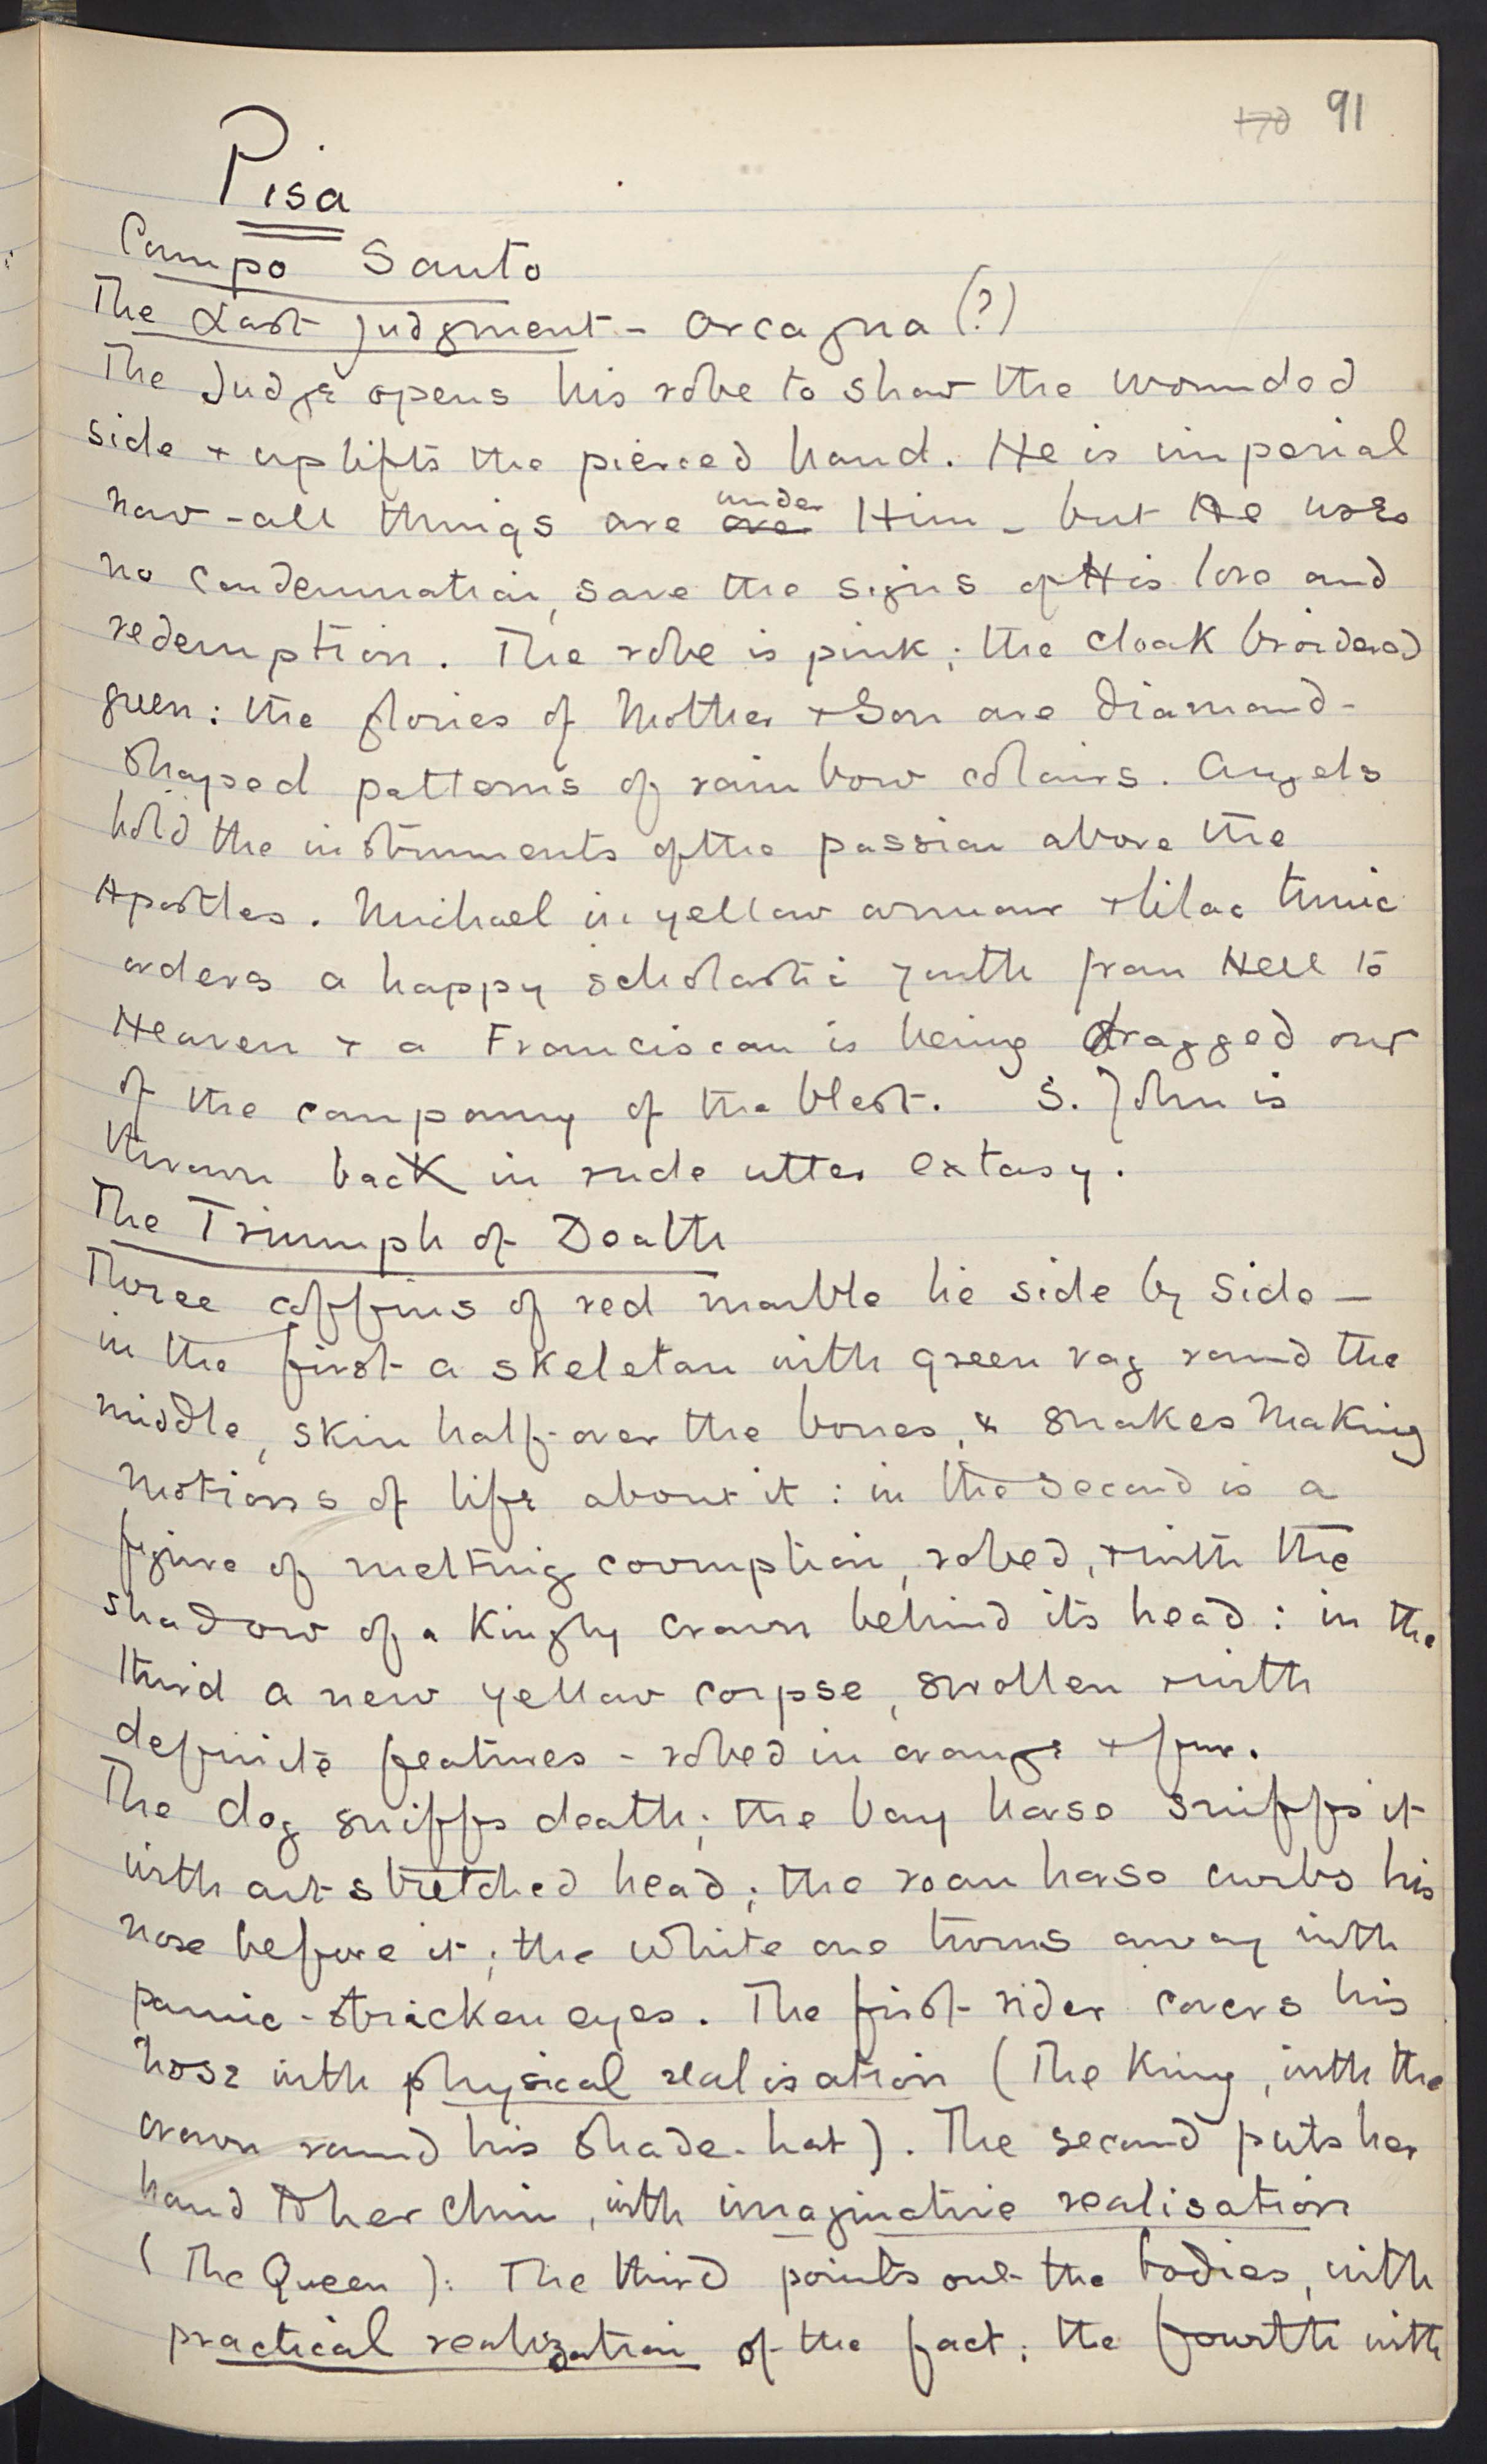 170 91
Pisa
Campo Santo
The Last Judgment - Orcagna (?)
The Judge opens his robe to show the wounded
side + uplifts the pierced hand. He is imperial
now - all things are over under Him - but He uses
no condemnation, save the signs of His love and
redemption. The robe is pink; the cloak broidered
green: the glories of Mother + Son are diamond-
shaped patterns of rainbow colours. Angels
hold the instruments of the passion above the
Apostles. Michael in yellow armour + lilac tunic
orders a happy scholastic youth from Hell to
Heaven + a Franciscan is being dragged out
of the company of the blest. S. John is
thrown back in rude utter extasy.
The Triumph of Death
Three coffins of red marble lie side by side —
in the first a skeleton with green rag round the
middle, skin half-over the bones, & snakes making
motions of life about it: in the second is a
figure of melting corruption, robed, + with the
shadow of a Kingly crown behind its head: in the
third a new yellow corpse, swollen + with
definite features - robed in orange + fur.
The dog sniffs death; the bay horse sniffs it
with out-stretched head; the roan horse curbs his
nose before it; the white one turns away with
panic-stricken eyes. The first rider covers his
nose with physical realisation (The King, with the
crown round his shade-hat). The second puts her
hand to her chin, with imaginative realisation
(The Queen): The third points out the bodies, with
practical realization of the fact; the fourth with